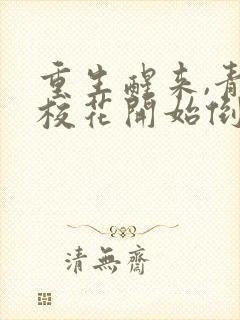 重生醒来,青
校花開始倒
清無齋